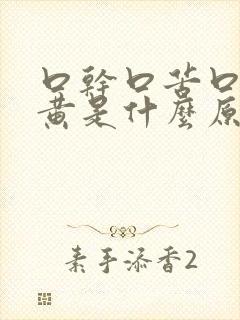 口幹口苦口
黄是什麼原
素手添香2